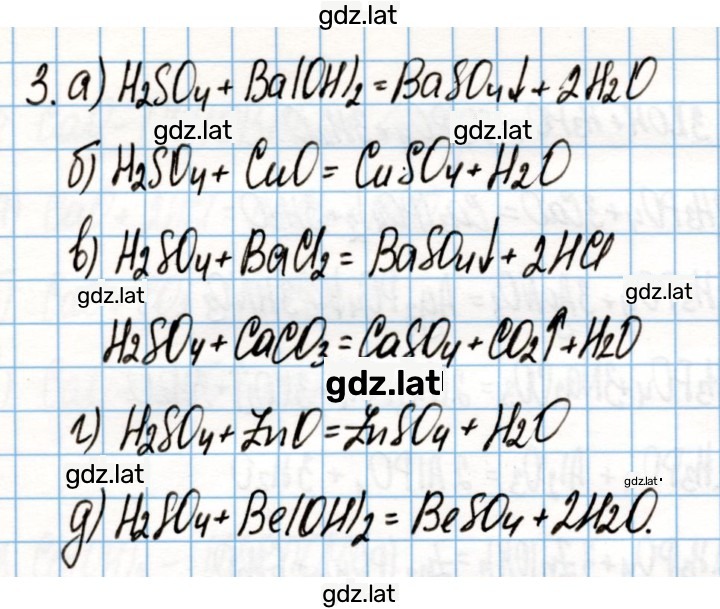 gdz.lat
3. а) H₂SO₄ + Ba(OH)₂ = BaSO₄↓ + 2H₂O
gdz.lat gdz.lat
б) H₂SO₄ + CuO = CuSO₄ + H₂O
в) H₂SO₄ + BaCl₂ = BaSO₄↓ + 2HCl
gdz.lat gdz.lat
H₂SO₄ + CaCO₃ = CaSO₄ + CO₂↑ + H₂O
gdz.lat
г) H₂SO₄ + ZnO = ZnSO₄ + H₂O
gdz.lat gdz.lat
д) H₂SO₄ + Be(OH)₂ = BeSO₄ + 2H₂O.
gdz.lat